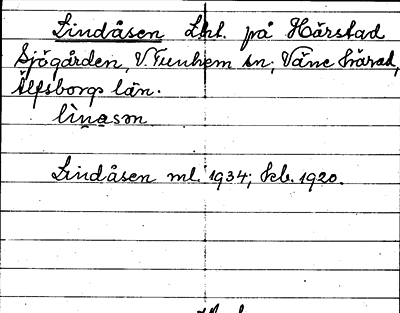 Lindåsen Lht. på Hårstad
Sjögården, V. Tunhem sn, Väne härad,
Älfsborgs län.
lìnasən
Lindåsen ml. 1934; kb. 1920.